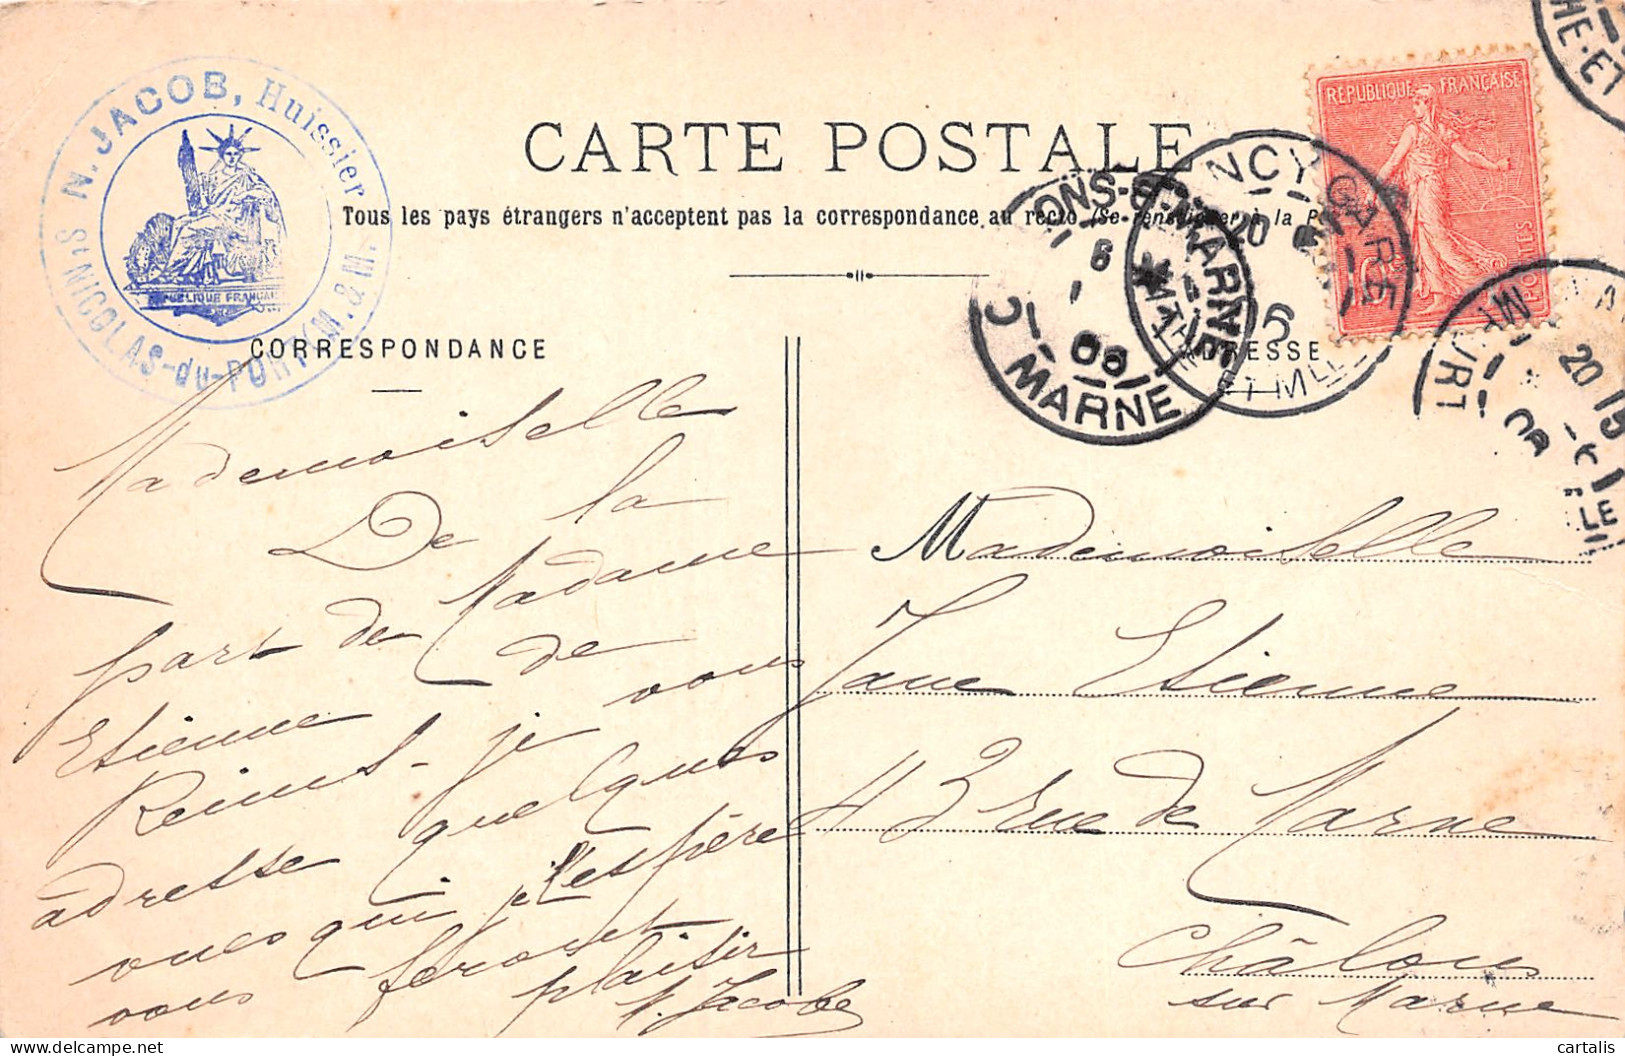 N. JACOB, Huissier
St NICOLAS-du-PORT (M. & M.)
RÉPUBLIQUE FRANÇAISE
CARTE POSTALE
Tous les pays étrangers n'acceptent pas la correspondance au recto (Se renseigner à la P
CORRESPONDANCE
ADRESSE
RÉPUBLIQUE FRANÇAISE
POSTES
NCY-GARE
20
6
MEURTHE ET MLLE
ONS-S-MARNE
6
06
MARNE
HE-ET
20
15
LE
Mademoiselle
De la
part de Madame
Etienne de
Reims - je vous
adresse quelques
vues qui j'espère
vous feront
plaisir
N. Jacob
Mademoiselle
Jane Etienne
43 rue de Marne
Châlons
sur Marne
cartalis